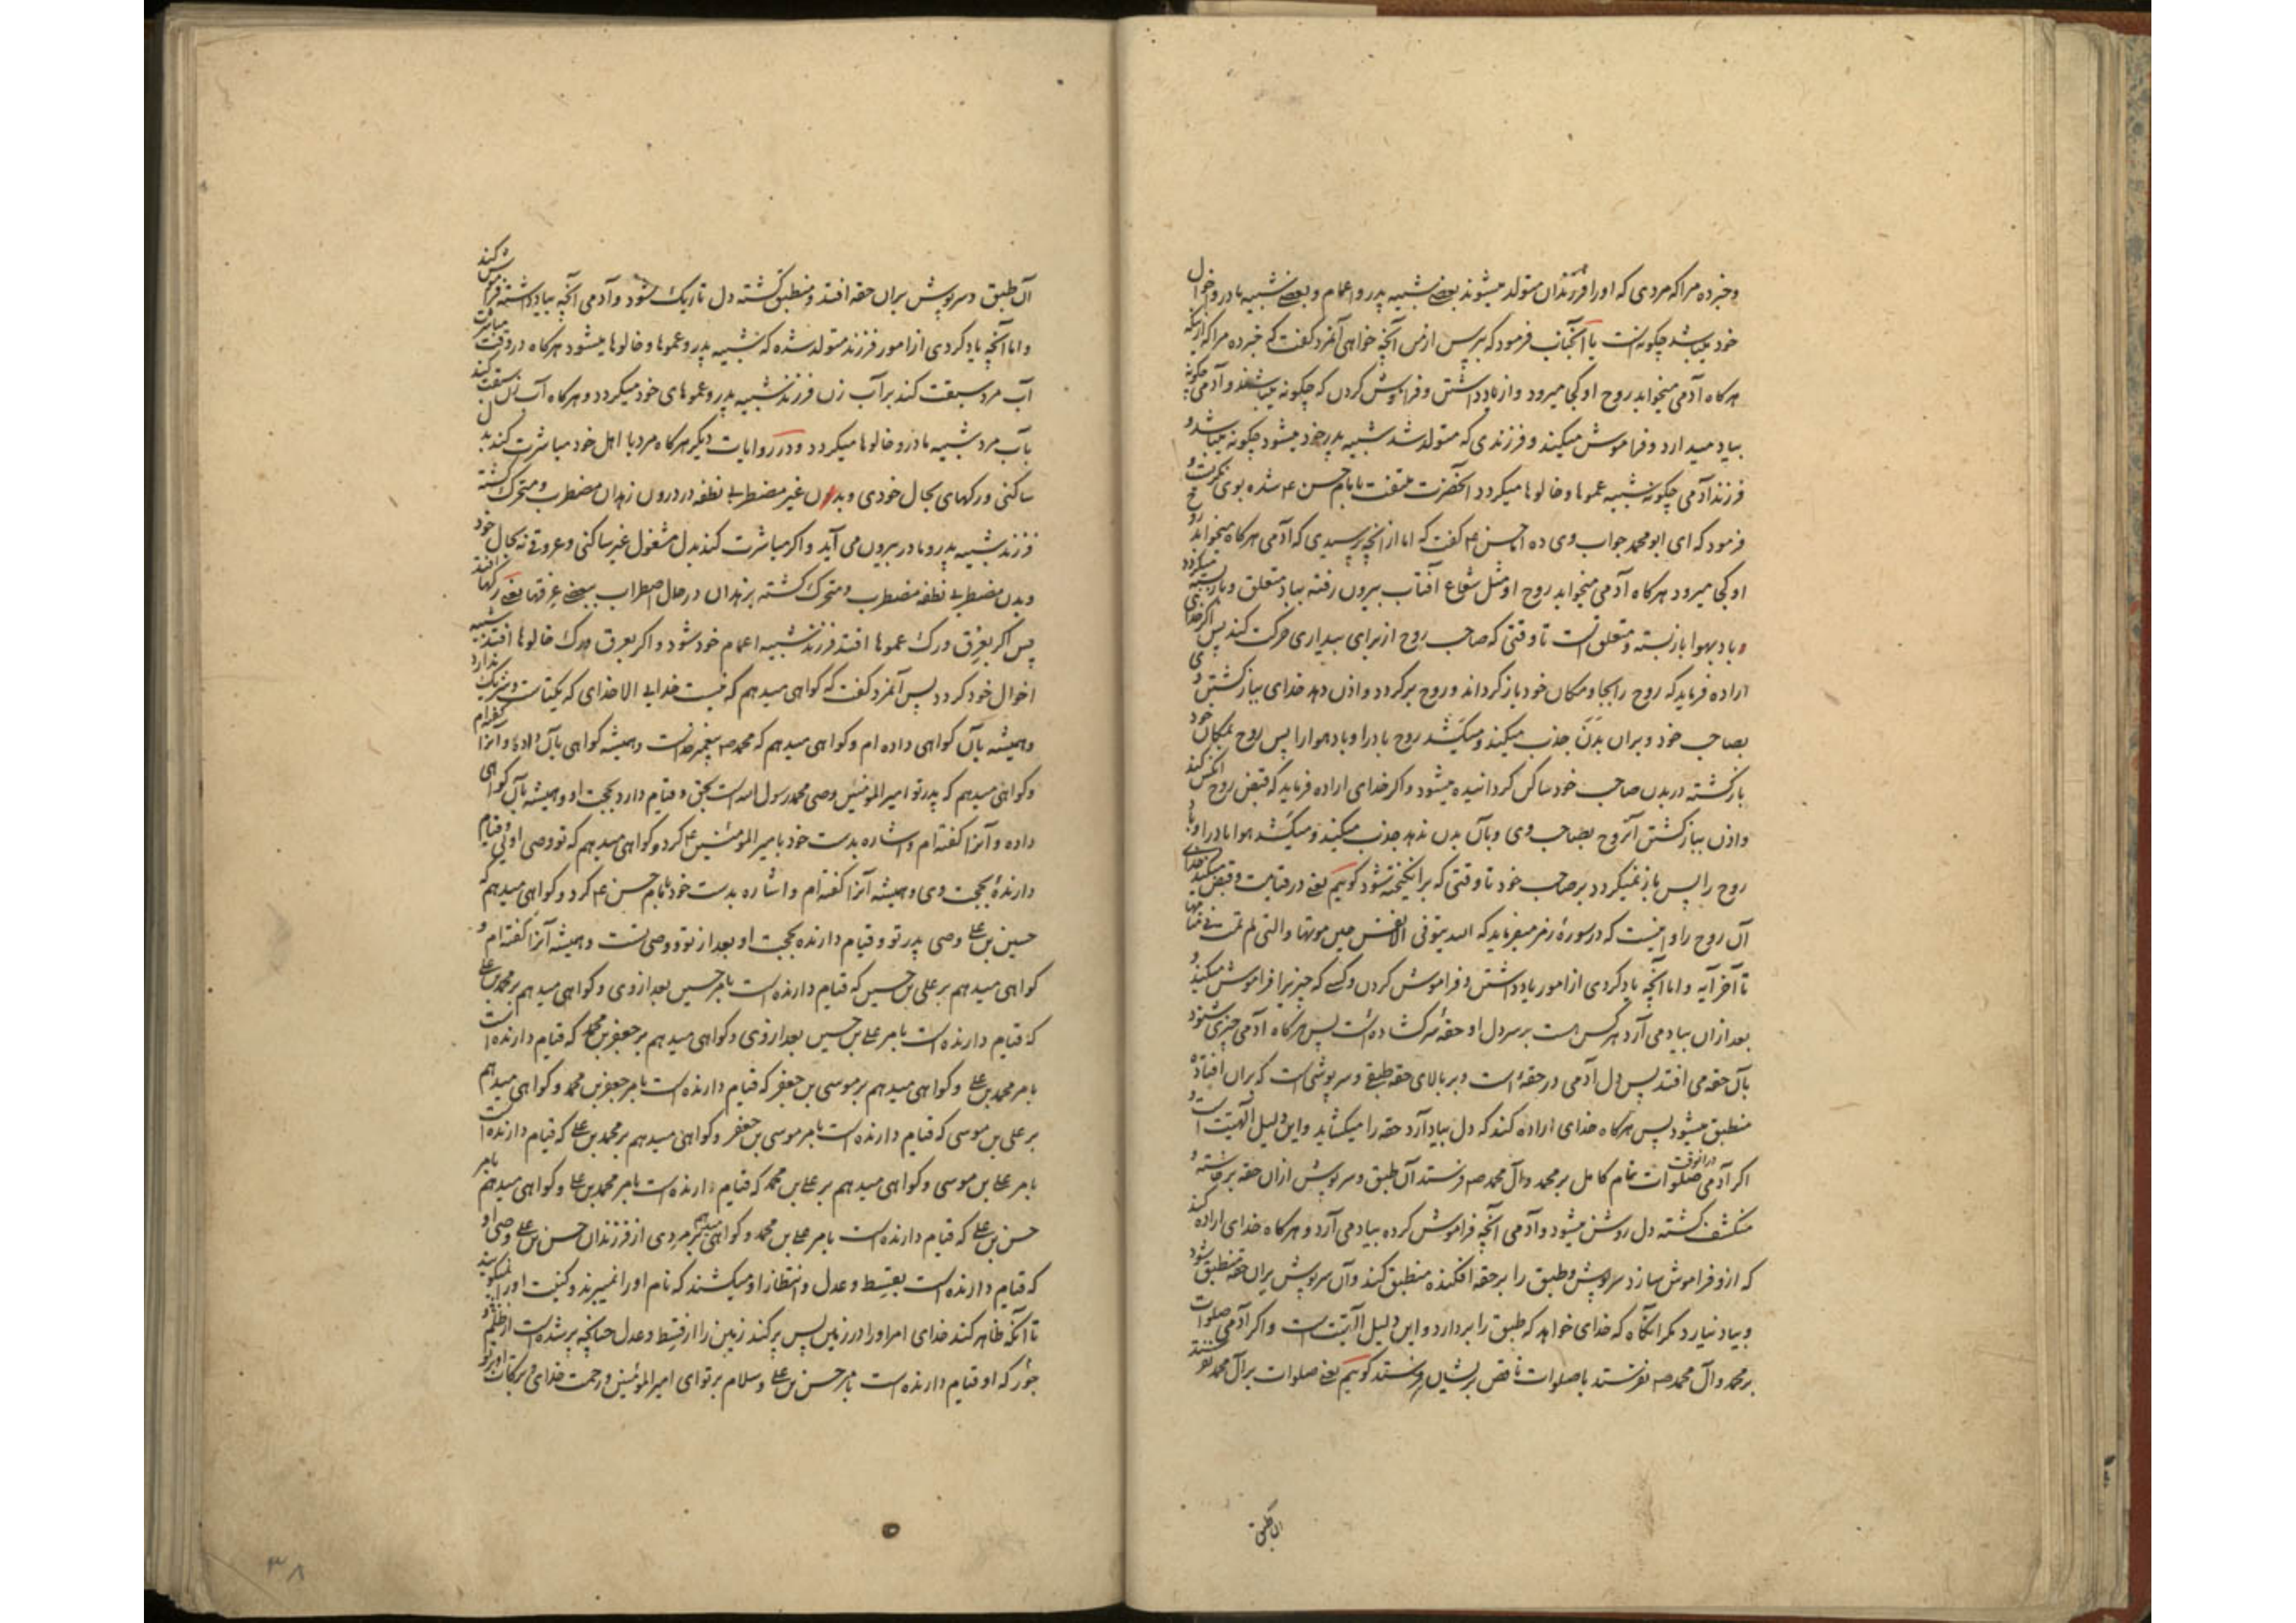 و خبر ده مرا که مردی که او را فرزندان متولد میشوند بعضی شبیه پدر و اعمام و بعضی شبیه مادر و اخوال
خود میباشد چگونه است یا آنجناب فرمود که بپرس از من آنچه خواهی آنمرد گفت که خبر ده مرا که از اینکه
هر کاه آدمی میخوابد روح او کجا میرود و از یاد داشتن و فراموش کردن که چگونه میباشند و آدمی چگونه
بیاد میدارد و فراموش میکند و فرزندی که متولد شد شبیه پدر خود میشود چگونه میباشد و
فرزند آدمی چگونه شبیه عموها و خالوها میکردد آنحضرت ملتفت بامام حسن ع شده بوی نکریست و
فرمود که ای ابو محمد جواب وی ده امام حسن ع گفت که اما از آنچه پرسیدی که آدمی هرکاه میخوابد روح
او کجا میرود هرکاه آدمی میخوابد روح او مثل شعاع آفتاب بیرون رفته بباد متعلق و باز بسته میکردد
و باد بهوا باز بسته و متعلق است تا وقتی که صاحب روح از برای بیداری حرکت کند پس اکر خدای
اراده فرماید که روح را بجا و مکان خود باز کرداند و روح برکردد و اذن دهد خدای بباز کشتن
بصاحب خود و بران بدن جذب میکند و میکشد روح باد را و باد هوا را پس روح بمکان خود
باز کشته در بدن صاحب خود ساکن کردانیده میشود و اکر خدای اراده فرماید که قبض روح آنکس کند
و اذن بباز کشتن آنروح بصاحب وی و بآن بدن ندهد جذب میکند و میکشد هوا باد را و باد
روح را پس باز نمیکردد بر صاحب خود تا وقتی که برانکیخته شود کوئیم یعنی در قیامت و قبض میکند خدای
آن روح را و اینست که در سورهٔ زمر میفرماید که الله یتوفی الانفس حین موتها والتی لم تمت فی منامها
تا آخر آیه و اما آنچه یاد کردی از امور یاد داشتن و فراموش کردن و کسی که چیزیرا فراموش میکند و
بعد از ان بیاد می آرد هر کس هست بر سر دل او حقهٔ سر کشاده است پس هرکاه آدمی چیزی شنود
بآن حقه می افتد پس دل آدمی در حقهٔ است و بر بالای حقه طبقی و سرپوشی است که بران افتاده
منطبق میشود پس هرکاه خدای اراده کند که دل بیاد آرد حقه را میکشاید و این دلیل الهیت است و
اکر آدمی در انوقت صلوات تمام کامل بر محمد و آل محمد ص فرستد آن طبق و سرپوش از ان حقه برخاسته و
منکشف کشته دل روشن میشود و آدمی آنچه فراموش کرده بیاد می آرد و هرکاه خدای اراده کند
که ازو فراموش سازد سرپوش و طبق را بر حقه افکنده منطبق کند و آن سرپوش بران حقه منطبق شود
و بیاد نیارد مکر آنکاه که خدای خواهد که طبق را بردارد و این دلیل الهیت است و اکر آدمی صلوات
بر محمد و آل محمد ص نفرستد یا صلوات ناقص بریشان فرستد کوئیم یعنی صلوات بر آل محمد نفرستد
ان طبق
آن طبق و سرپوش بران حقه افتد و منطبق کشته دل تاریک شود و آدمی آنچه بیاد داشته فراموش کند
و اما آنچه یاد کردی از امور فرزند متولد شده که شبیه پدر و عموها و خالوها میشود هرکاه در وقت مباشرت
آب مرد سبقت کند بر آب زن فرزند شبیه پدر و عموهای خود میکردد و هرکاه آب زن سبقت کند
بآب مرد شبیه مادر و خالوها میکردد و در روایات دیکر هرکاه مرد با اهل خود مباشرت کند بدل
ساکنی و رکهای بحال خودی و بدن غیر مضطربی نطفه در درون زهدان مضطرب و متحرک کشته
فرزند شبیه پدر و مادر بیرون می آید و اکر مباشرت کند بدل مشغول غیر ساکنی و عروقی نه بحال خود
و بدن مضطربی نطفه مضطرب و متحرک کشته بزهدان در حال اضطراب ببعضی عرقها یعنی رکها افتد
پس اکر بعرق و رک عموها افتد فرزند شبیه اعمام خود شود و اکر بعرق و رک خالوها افتد شبیه
اخوال خود کردد پس آنمرد گفت که کواهی میدهم که نیست خدایی الا خدای که یکتاست و شریک ندارد
و همیشه بآن کواهی داده ام و کواهی میدهم که محمد ص پیغمبر خداست و همیشه کواهی بآن داده و آنرا گفته ام
و کواهی میدهم که پدر تو امیر المؤمنین وصی محمد رسول الله است بحق و قیام دارد بحجت او و همیشه بآن کواهی
داده و آنرا گفته ام و اشاره بدست خود بامیر المؤمنین ع کرد و کواهی میدهم که تو وصی اوئی و قیام
دارندهٔ بحجت وی و همیشه آنرا گفته ام و اشاره بدست خود بامام حسن ع کرد و کواهی میدهم که
حسین بن علی وصی پدر تو و قیام دارنده بحجت او بعد از تو و وصی تست و همیشه آنرا گفته ام و
کواهی میدهم بر علی بن حسین که قیام دارنده است بامر حسین بعد از وی و کواهی میدهم بر محمد بن علی
که قیام دارنده است بامر علی بن حسین بعد از وی و کواهی میدهم بر جعفر بن محمد که قیام دارنده است
بامر محمد بن علی و کواهی میدهم بر موسی بن جعفر که قیام دارنده است بامر جعفر بن محمد و کواهی میدهم
بر علی بن موسی که قیام دارنده است بامر موسی بن جعفر و کواهی میدهم بر محمد بن علی که قیام دارنده است
بامر علی بن موسی و کواهی میدهم بر علی بن محمد که قیام دارنده است بامر محمد بن علی و کواهی میدهم بامر
حسن بن علی که قیام دارنده است بامر علی بن محمد و کواهی میدهم بر مردی از فرزندان حسن بن علی وصی او
که قیام دارنده است بقسط و عدل و انتظار او میکشند که نام او را نمیبرند و کنیت او را نمیکویند
تا آنکه ظاهر کند خدای امر او را در زمین پس پر کند زمین را از قسط و عدل چنانچه پر شده است از ظلم و
جور که او قیام دارنده است بامر حسن بن علی و سلام بر تو ای امیر المؤمنین و رحمت خدای و برکات او بر تو
۳۸